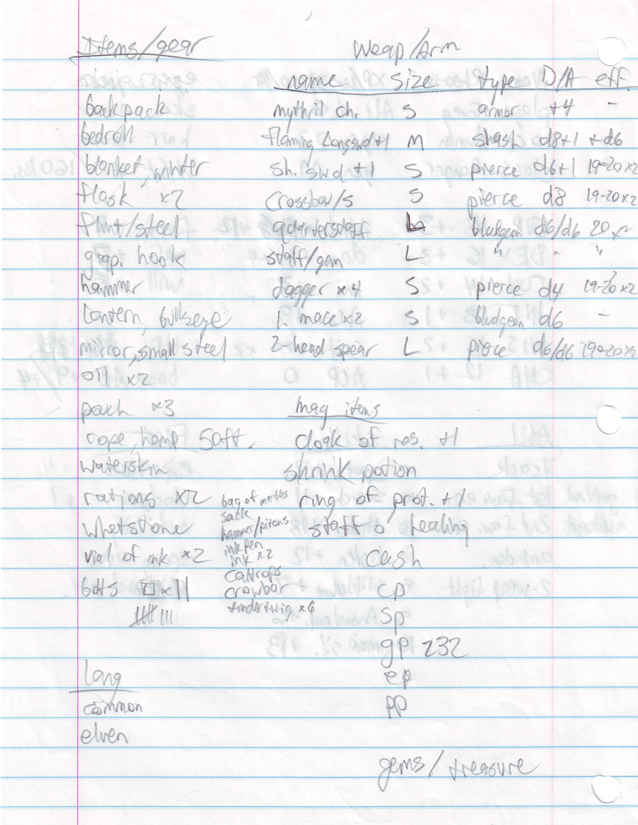 Items/gear Weap/Arm
name size type D/A eff.
backpack mythril ch. S armor +4 -
bedroll flaming longswd+1 M slash d8+1 +d6
blanket, winter sh. swd +1 S pierce d6+1 19-20x2
flask x2 crossbow/s S pierce d8 19-20x2
flint/steel quarterstaff L bludgeon d6/d6 20
grap. hook staff/gem L " " "
hammer dagger x4 S pierce d4 19-20x2
lantern, bullseye l. mace x2 S bludgeon d6 -
mirror, small steel 2-head spear L pierce d6/d6 19-20x2
oil x2
pouch x3 mag items
rope, hemp 50ft. cloak of res. +1
waterskin shrink potion
rations x2 bag of marbles ring of prot. +1
whetstone hammer/pitons staff o healing
vial of ink x2 inkpen cash
ink x2
caltrops
bolts x11 crowbar cp
tindertwig x6 sp
gp 232
lang ep
common pp
elven
gems/treasure